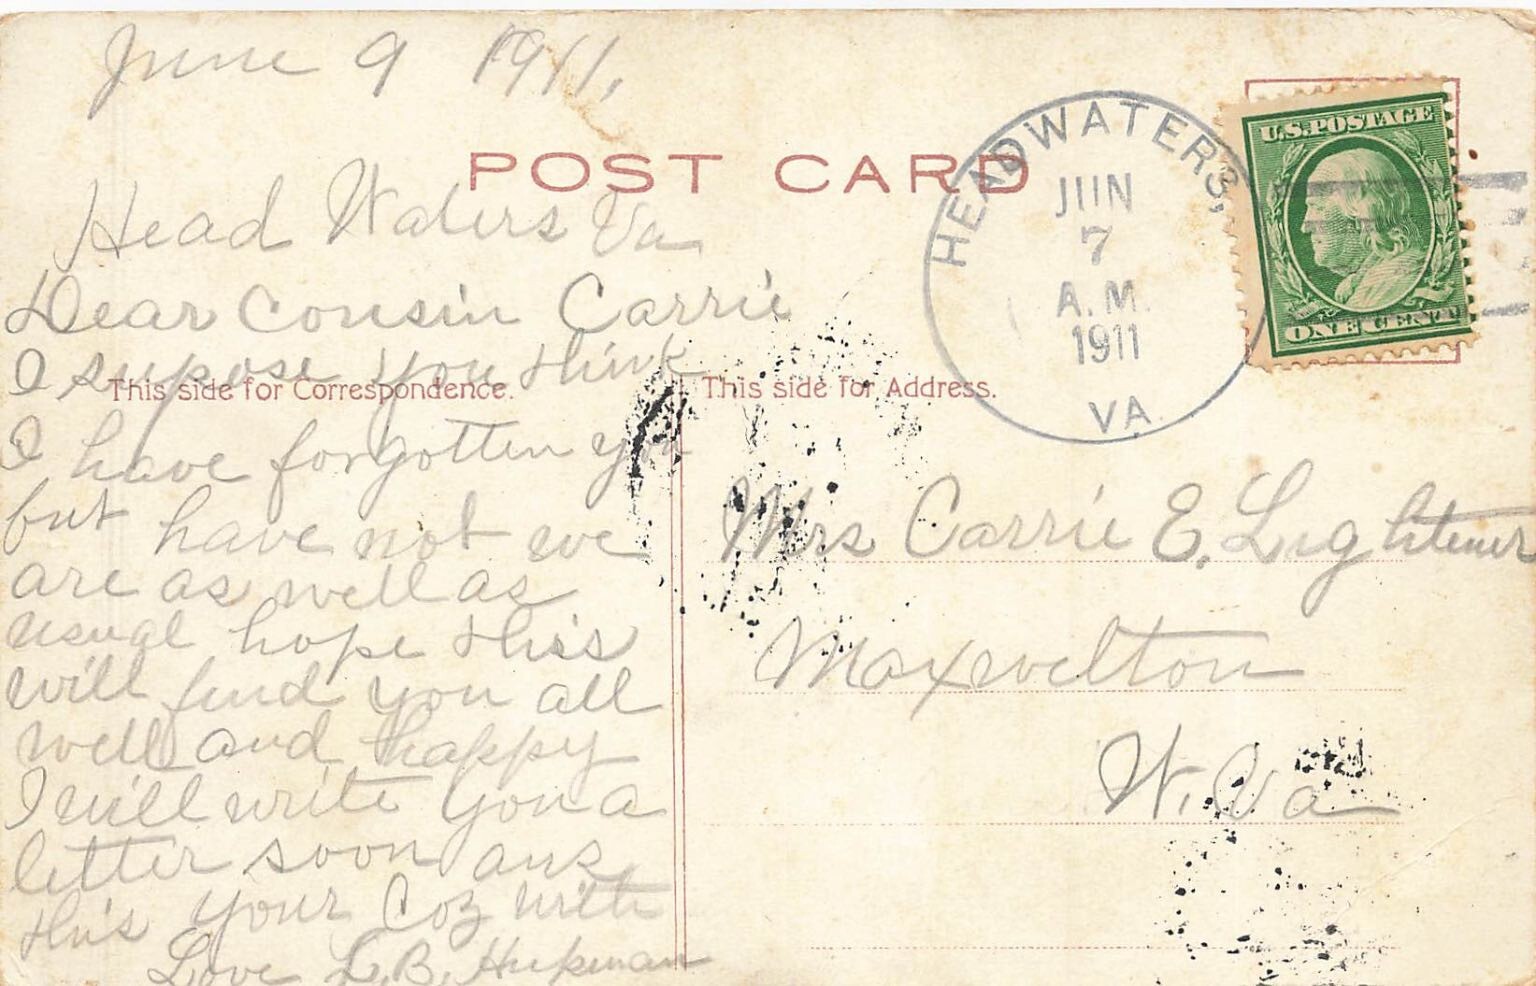 June 9 1911,
POST CARD
HEADWATERS,
JUN
7
A.M.
1911
VA.
U.S. POSTAGE
ONE CENT
Head Waters Va
Dear Cousin Carrie
I supose you think
This side for Correspondence.
This side for Address.
I have forgotten you
but have not we
are as well as
usual hope this
will find you all
well and happy
I will write you a
letter soon ans
this your Coz with
Love L.B. Hupman
Mrs Carrie E. Lightener
Maxwelton
W. Va